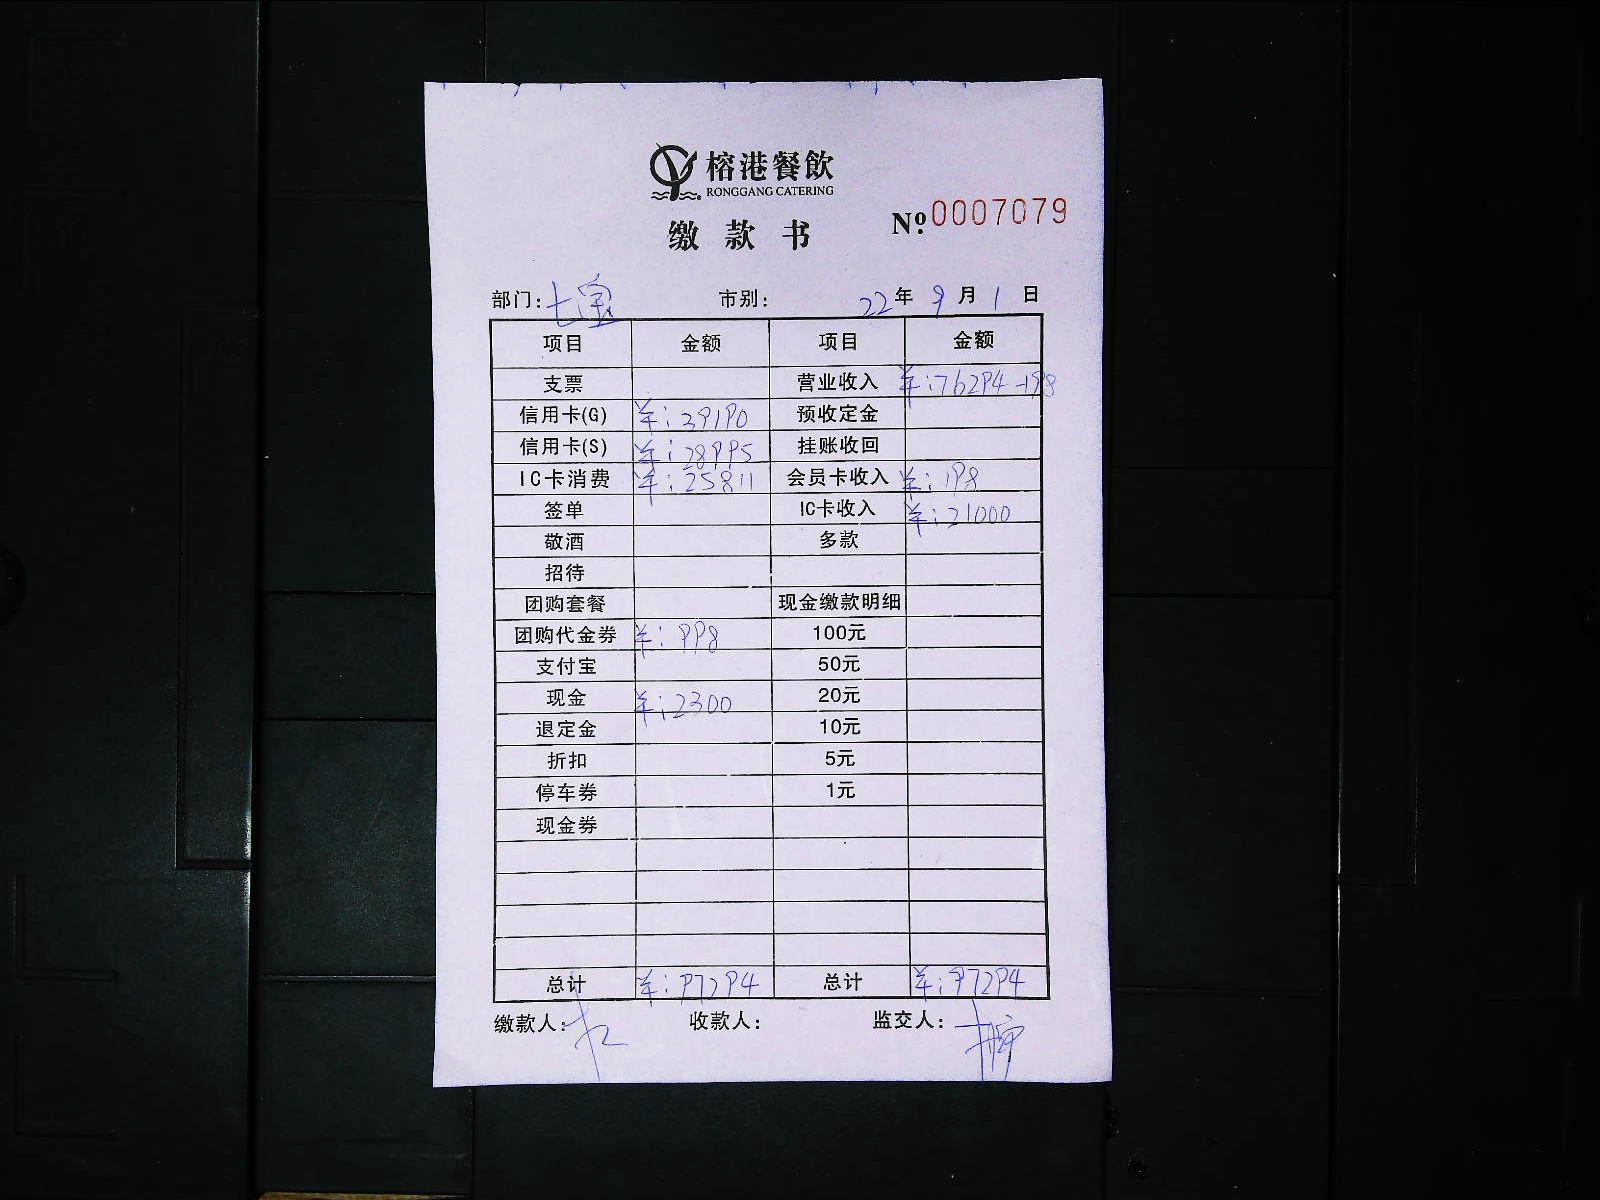 榕港餐飲
RONGGANG CATERING
缴款书 Nº: 0007079
部门: 七宝 市别: 22年 9月 1日
项目 金额 项目 金额
支票 营业收入 ¥:76294-198
信用卡(G) ¥:39190 预收定金
信用卡(S) ¥:28995 挂账收回
IC卡消费 ¥:25811 会员卡收入 ¥:198
签单 IC卡收入 ¥:21000
敬酒 多款
招待
团购套餐 现金缴款明细
团购代金券 ¥:998 100元
支付宝 50元
现金 ¥:2300 20元
退定金 10元
折扣 5元
停车券 1元
现金券
总计 ¥:97294 总计 ¥:97294
缴款人: 收款人: 监交人: